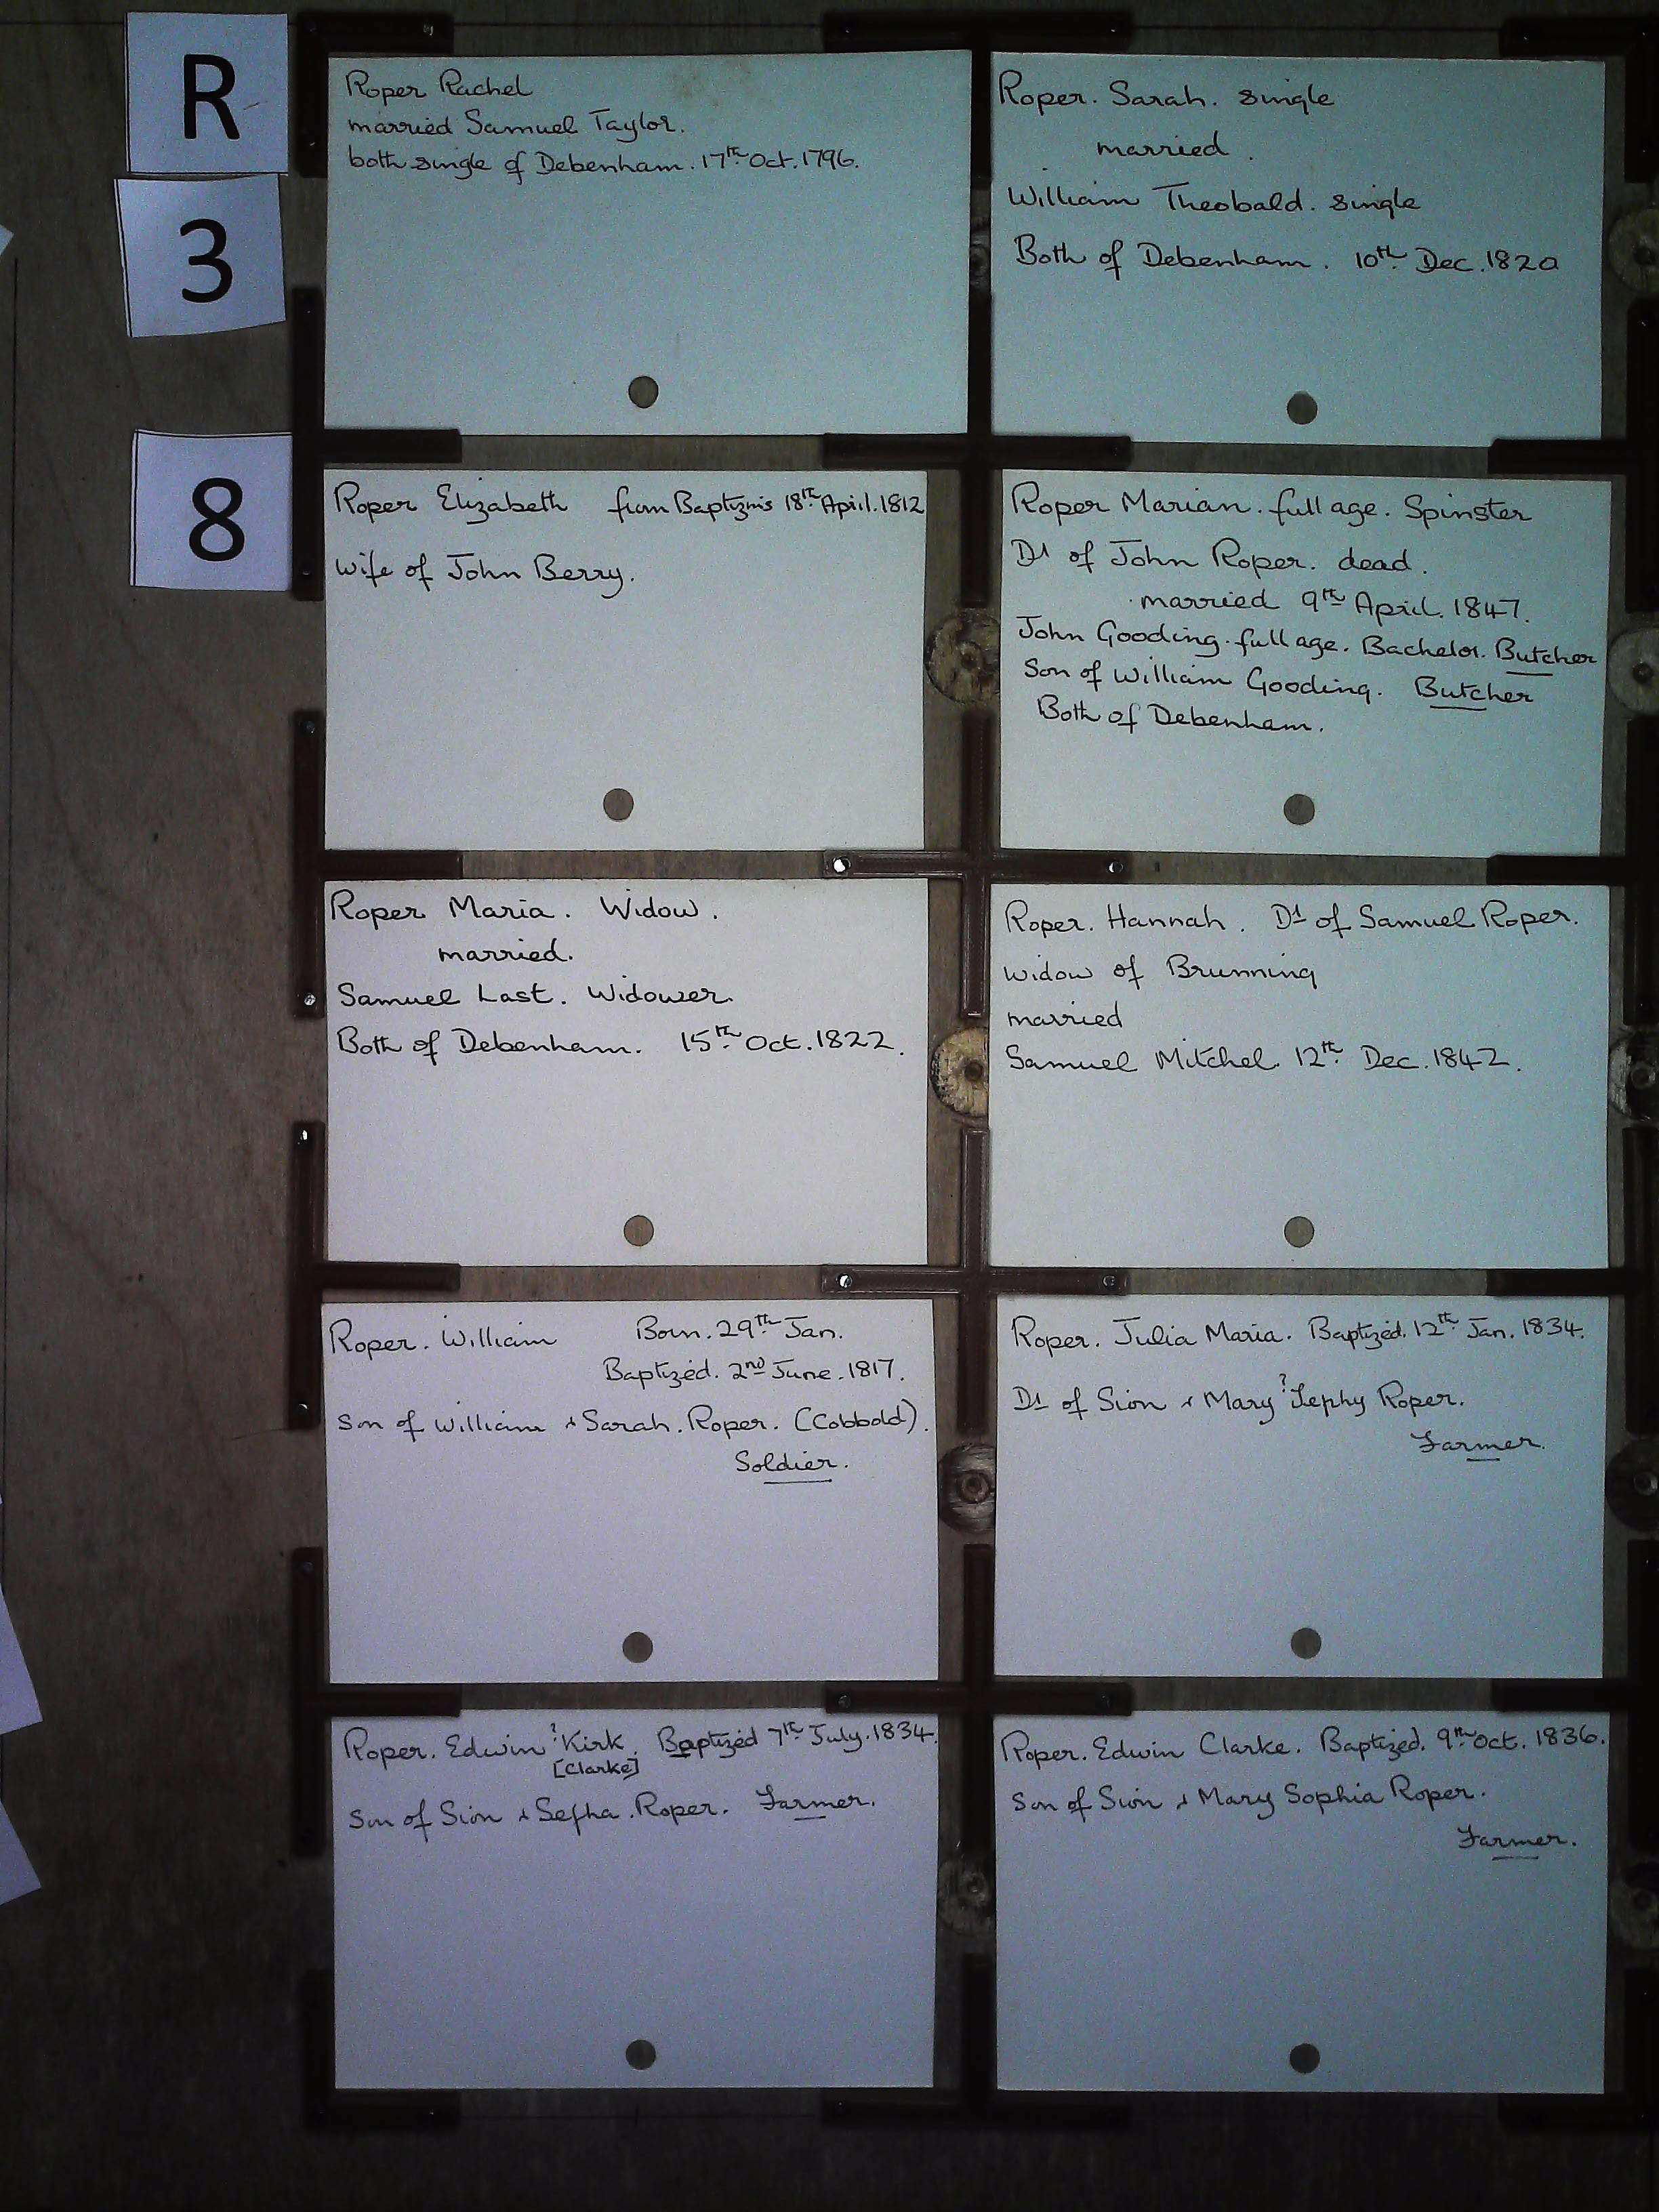 R
3
8
Roper Rachel
married Samuel Taylor.
both single of Debenham. 17th Oct. 1796.
Roper. Sarah. single
married.
William Theobald. single
Both of Debenham. 10th Dec. 1820
Roper Elizabeth from Baptizms 18th April. 1812
Wife of John Berry.
Roper Marian. full age. Spinster
Dt of John Roper. dead.
married 9th April. 1847.
John Gooding. full age. Bachelor. Butcher
Son of William Gooding. Butcher
Both of Debenham.
Roper Maria. Widow.
married.
Samuel Last. Widower.
Both of Debenham. 15th Oct. 1822.
Roper. Hannah. Dt of Samuel Roper.
widow of Brunning
married
Samuel Mitchel. 12th Dec. 1842.
Roper. William Born. 29th Jan.
Baptized. 2nd June. 1817.
Son of William & Sarah. Roper. (Cobbold).
Soldier.
Roper. Julia Maria. Baptized. 12th Jan. 1834.
Dt of Sion & Mary ?Jephy Roper.
Farmer.
Roper. Edwin ?Kirk. Baptized 7th July. 1834.
[Clarke]
Son of Sion & Sefha. Roper. Farmer.
Roper. Edwin Clarke. Baptized. 9th Oct. 1836.
Son of Sion & Mary Sophia Roper.
Farmer.